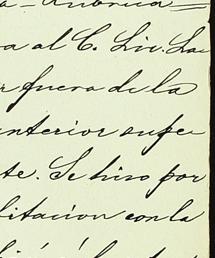 a - Rubrica =
a al C. Lic. La
r fuera de la
interior supe
te. Se hiso por
litacion con la